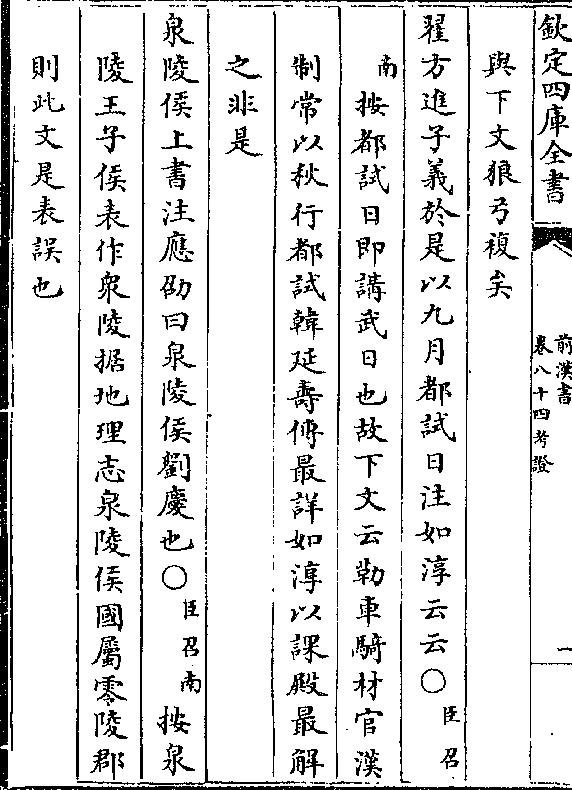 欽定四庫全書
前漢書
卷八十四考證
一
與下文狼弓複矣
翟方進子義於是以九月都試日注如淳云云○臣召
南按都試日即講武日也故下文云勒車騎材官漢
制常以秋行都試韓延壽傳最詳如淳以課殿最解
之非是
泉陵侯上書注應劭曰泉陵侯劉慶也○臣召南按泉
陵王子侯表作衆陵據地理志泉陵侯國屬零陵郡
則此文是表誤也